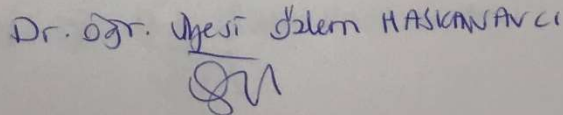 Dr. öğr. Üyesi Özlem HASKANAVCI